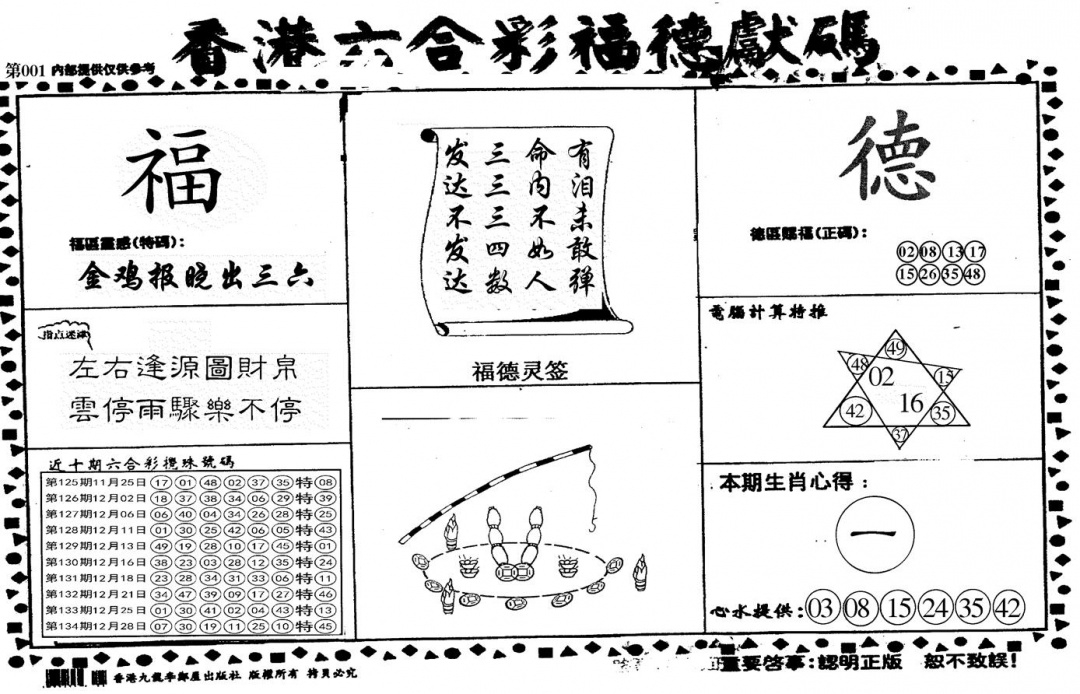 香港六合彩福德獻碼
第001 内部提供仅供参考
福
福區靈感(特碼):
金鸡报晓出三六
指点迷津
左右逢源圖財帛
雲停雨驟樂不停
近十期六合彩攪珠號碼
第125期11月25日 17 01 48 02 37 35 特 08
第126期12月02日 18 37 38 34 06 29 特 39
第127期12月06日 06 40 04 34 26 28 特 25
第128期12月11日 01 30 25 42 06 05 特 43
第129期12月13日 49 19 28 10 17 45 特 01
第130期12月16日 38 23 03 28 12 35 特 24
第131期12月18日 23 28 34 31 33 06 特 11
第132期12月21日 34 47 39 09 17 27 特 46
第133期12月25日 01 30 41 02 04 43 特 13
第134期12月28日 07 30 19 11 25 10 特 45
有泪未敢弹
命内不如人
三三三四数
发达不发达
福德灵签
德
德區賜福(正碼):
02 08 13 17
15 26 35 48
電腦計算特推
49
48 02 15
42 16 35
37
本期生肖心得:
一
心水提供:03 08 15 24 35 42
香港九龍李鄭屋出版社 版權所有 拷貝必究
重要啓事:認明正版 恕不致誤!